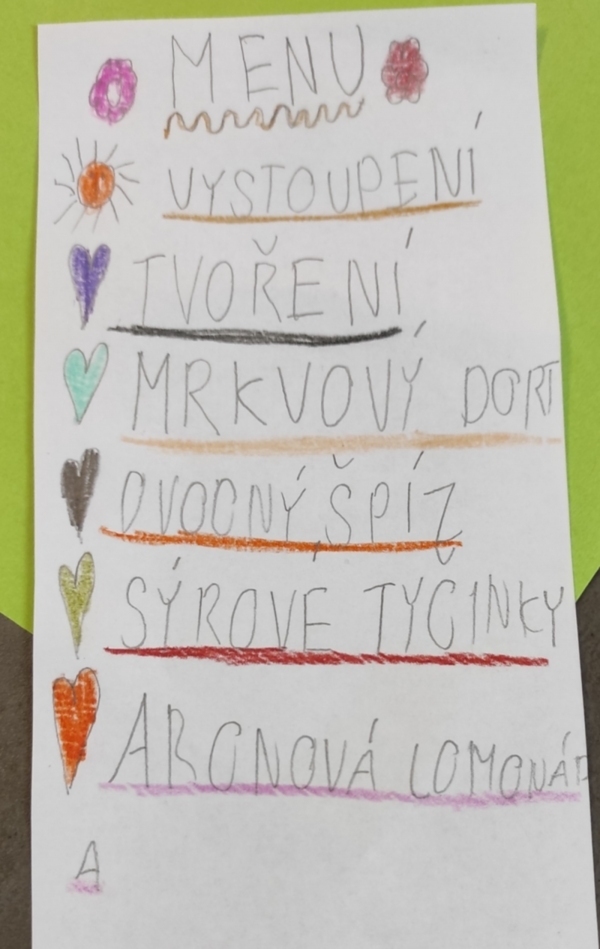 MENU
VYSTOUPENÍ
TVOŘENÍ
MRKVOVÝ DORT
OVOCNÝ ŠPÍZ
SÝROVÉ TYCINKY
ARONOVÁ LOMONÁD
A